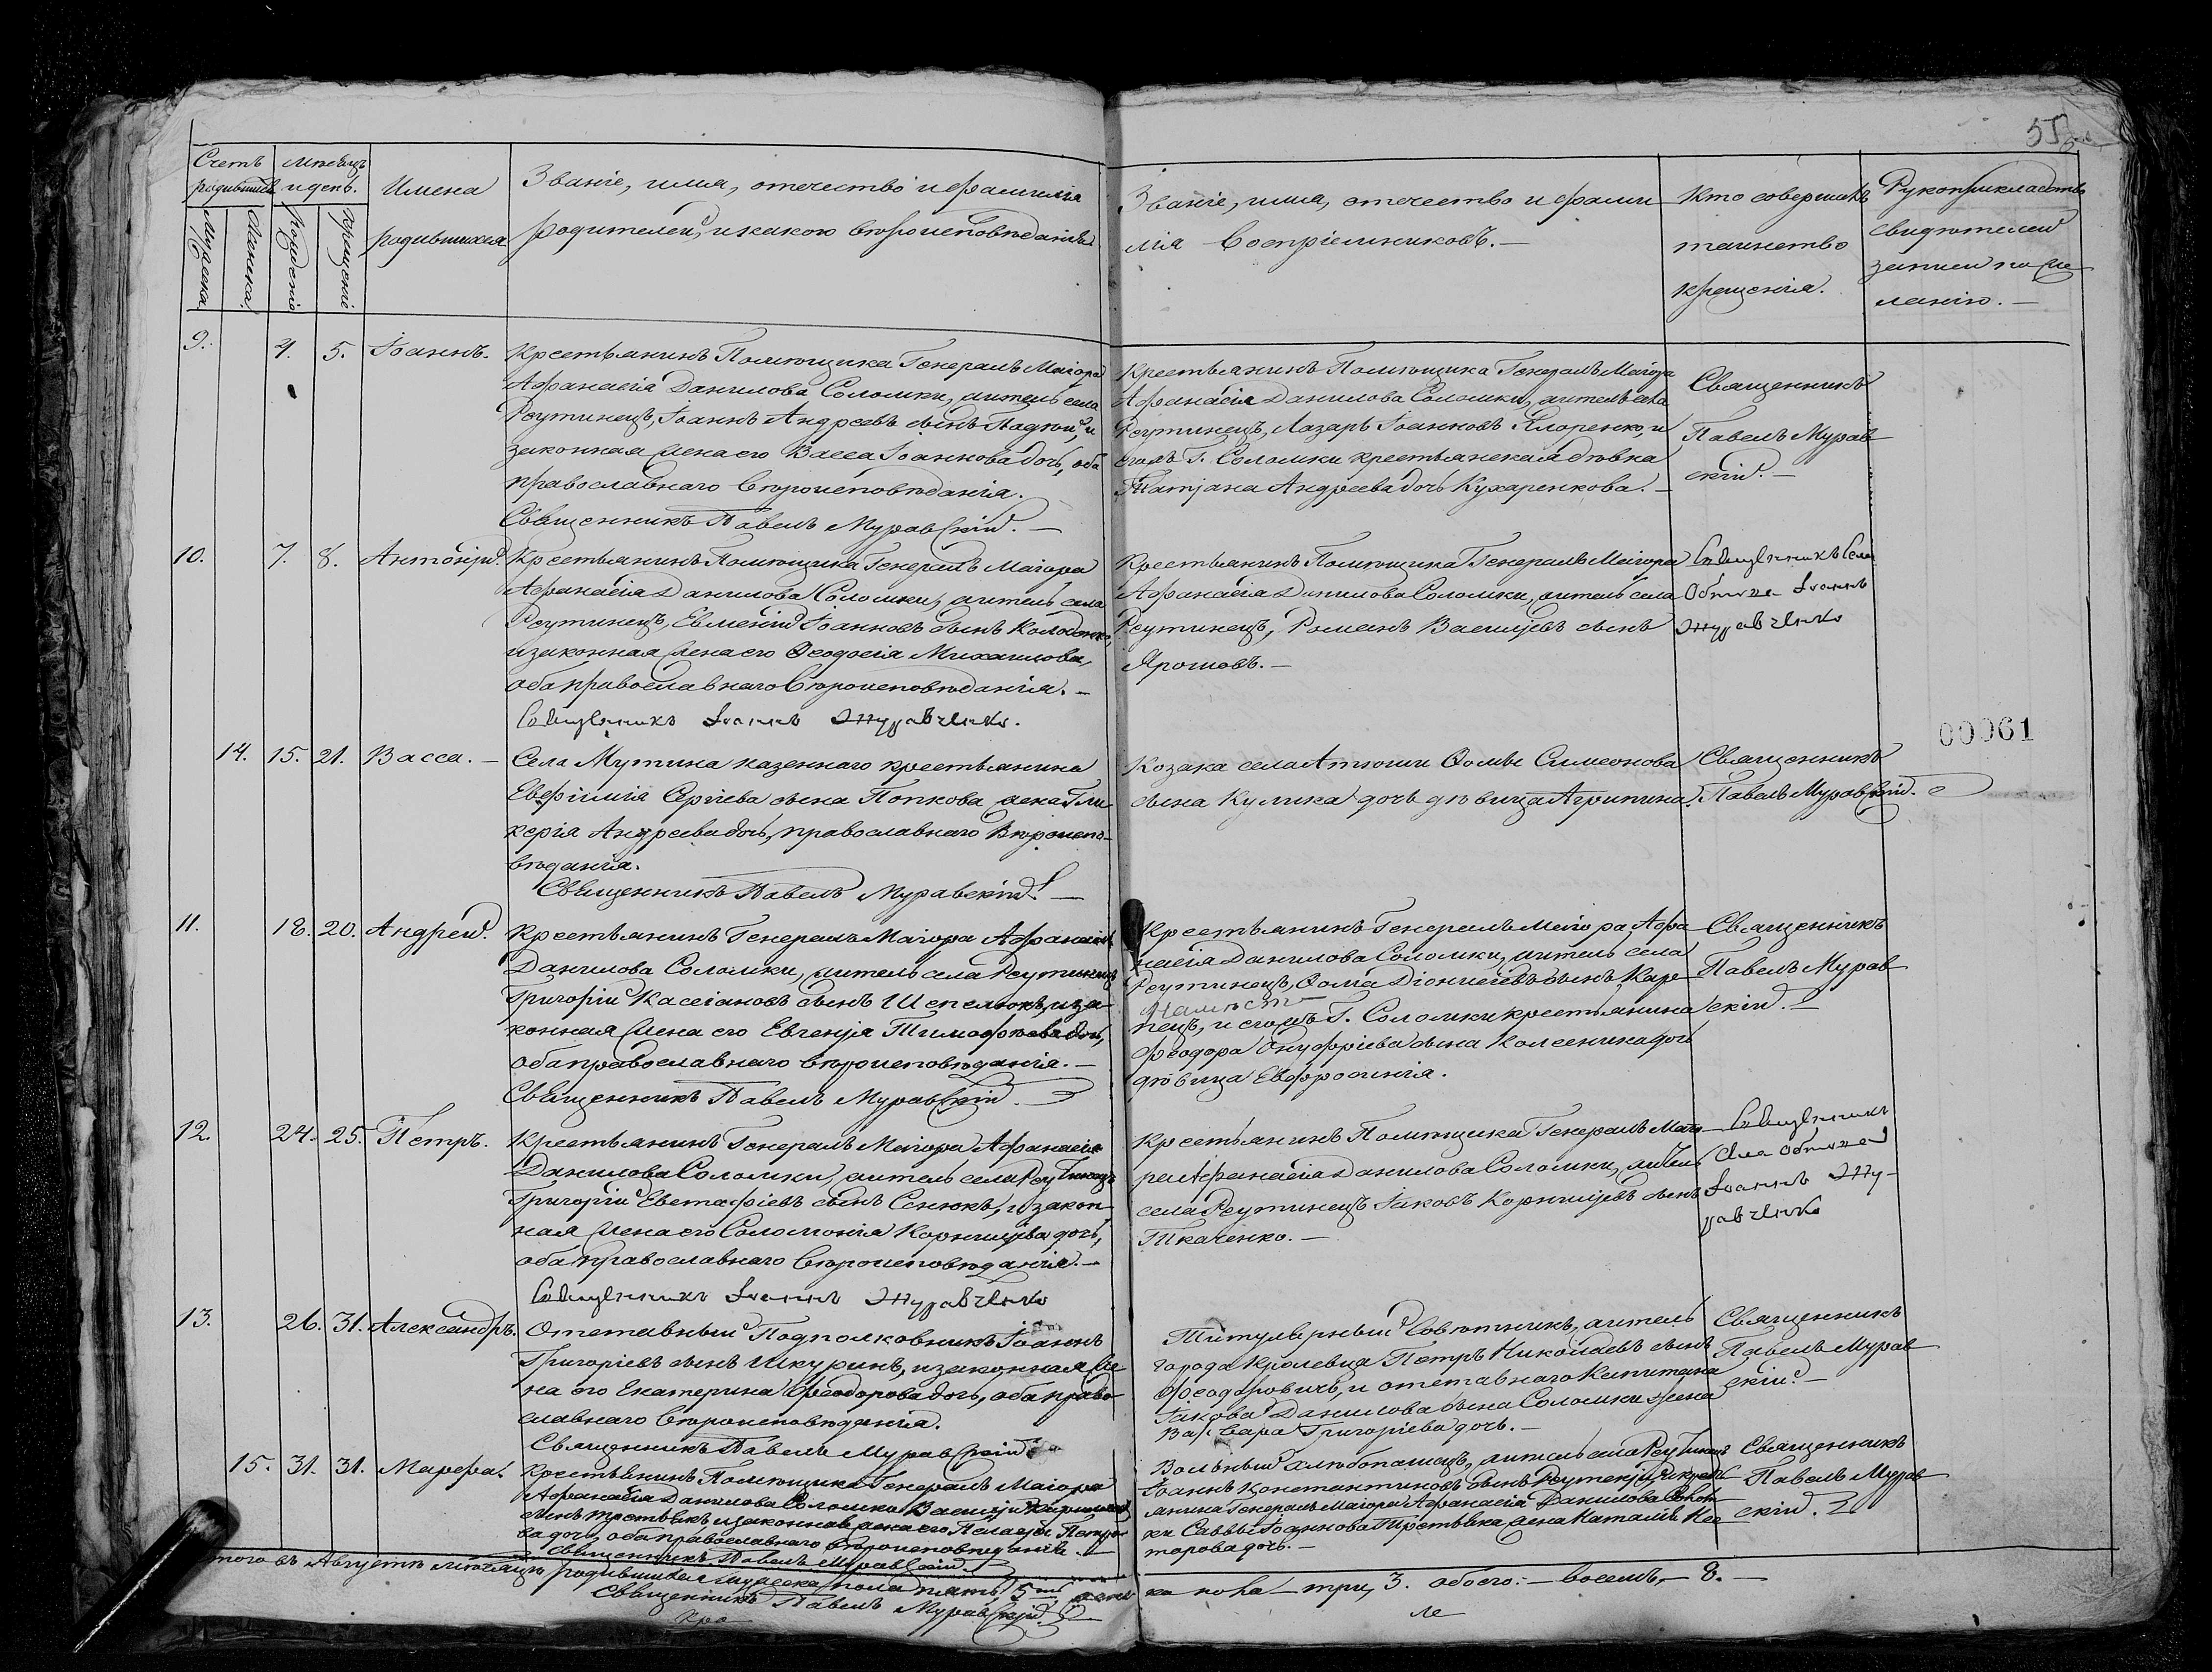 55
Счетъ родившихся
Мѣсяцъ и день.
Имена родившихся
Званіе, имя, отечество и фамилія
родителей, и какого вѣроисповѣданія
Званіе, имя, отечество и фами
лія воспріемниковъ.
Кто совершалъ
таинство
крещенія.
Рукоприкладство
свидѣтелей
записи по же
ланію.
Мужеска
Женска
Рожденія
Крещенія
9. 4. 5. Іоаннъ.
Крестьянинъ Помѣщика Генералъ Маіора
Афанасія Данилова Соломки, житель села
Реутинецъ, Іоаннъ Андреевъ сынъ и
законная жена его Васса Іоаннова дочь, оба
православнаго вѣроисповѣданія.
Священникъ Павелъ Муравскій.
Крестьянинъ Помѣщика Генералъ Маіора
Афанасія Данилова Соломки, житель села
Реутинецъ, Лазарь Іоанновъ и
тогожъ Г. Соломки крестьянская дѣвка
Татіана Андреева дочь Кухаренкова.
Священникъ
Павелъ Мурав
скій.
10. 7. 8. Антоній.
Крестьянинъ Помѣщика Генералъ Маіора
Афанасія Данилова Соломки, житель села
Реутинецъ, Евменій Іоанновъ сынъ
и законная жена его Феодосія Михаилова,
оба православнаго вѣроисповѣданія.
Священникъ Іоаннъ Журавченко.
Крестьянинъ Помѣщика Генералъ Маіора
Афанасія Данилова Соломки, житель села
Реутинецъ, Романъ Василіевъ сынъ
Ярошовъ.
Священникъ села
Іоаннъ
Журавченко
00061
14. 15. 21. Васса.
Села Мутина казеннаго крестьянина
Евфимія Сергіева сына Попкова жена Гли
керія Андреева дочь, православнаго вѣроиспо-
вѣданія.
Священникъ Павелъ Муравскій.
Козака села Атюши Фомы Симеонова
сына Кулика дочь дѣвица Агрипина.
Священникъ
Павелъ Муравскій.
11. 18. 20. Андрей.
Крестьянинъ Генералъ Маіора Афанасія
Данилова Соломки, житель села Реутинецъ
Григорій Касіановъ сынъ Шепелюкъ, и за-
конная жена его Евгенія Тимофѣева дочь,
оба православнаго вѣроисповѣданія.
Священникъ Павелъ Муравскій.
Крестьянинъ Генералъ Маіора Афа
насія Данилова Соломки, житель села
Реутинецъ, Фома Діонисіевъ сынъ Каре
пецъ, и тогожъ Г. Соломки крестьянина
Феодора Онуфріева сына Колесника дочь
дѣвица Евфросинія.
Священникъ
Павелъ Мурав
скій.
12. 24. 25. Петръ.
Крестьянинъ Генералъ Маіора Афанасія
Данилова Соломки, житель села Реутинецъ
Григорій Евстафіевъ сынъ Сенюкъ, и закон
ная жена его Соломонія Корниліева дочь,
оба православнаго вѣроисповѣданія.
Священникъ Іоаннъ Журавченко
Крестьянинъ Помѣщика Генералъ Маіо
ра Афанасія Данилова Соломки, житель
села Реутинецъ Іаковъ Корниліевъ сынъ
Ткаченко.
Священникъ
села
Іоаннъ Жу-
равченко
13. 26. 31. Александръ.
Отставный Подполковникъ Іоаннъ
Григоріевъ сынъ Шкуринъ, и законная же
на его Екатерина Феодорова дочь, оба право
славнаго вѣроисповѣданія.
Священникъ Павелъ Муравскій
Титулярный Совѣтникъ, житель
города Кролевца Петръ Николаевъ сынъ
Феодоровичъ, и отставнаго Капитана
Іакова Данилова сына Соломки жена
Варвара Григоріева дочь.
Священникъ
Павелъ Мурав
скій.
15. 31. 31. Марфа.
Крестьянинъ Помѣщика Генералъ Маіора
Афанасія Данилова Соломки Василій
сынъ Третьякъ и законная жена его Пелагія Петро
ва дочь, оба православнаго вѣроисповѣданія.
Священникъ Павелъ Муравскій
Вольный хлѣбопашецъ, житель села Реутинецъ
Іоаннъ Константиновъ сынъ и кресть
янина Генералъ Маіора Афанасія Данилова Солом
ки Саввы Іоаннова Третьяка жена Наталія Нес
торова дочь.
Священникъ
Павелъ Мурав
скій.
того въ Августѣ мѣсяцѣ родившихся мужеска пола пять 5 женс
ка пола три, 3. обоего: восемь, 8.
Священникъ Павелъ Муравскій